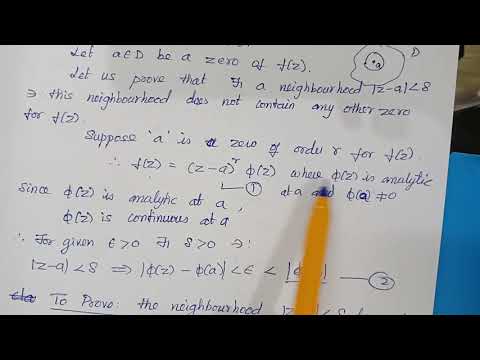 Let a∈D be a zero of f(z). D
a
Let us prove that ∃ a neighbourhood |z-a|<δ
∋ this neighbourhood does not contain any other zero
for f(z).
Suppose 'a' is zero of order r for f(z).
∴ f(z) = (z-a)^r φ(z) where φ(z) is analytic
① at a and φ(a) ≠0
Since φ(z) is analytic at a,
φ(z) is continuous at a
∴ For given ε>0 ∃ δ>0 ∋:
|z-a|<δ ⟹ |φ(z)-φ(a)|<ε< ②
To Prove: the neighbourhood